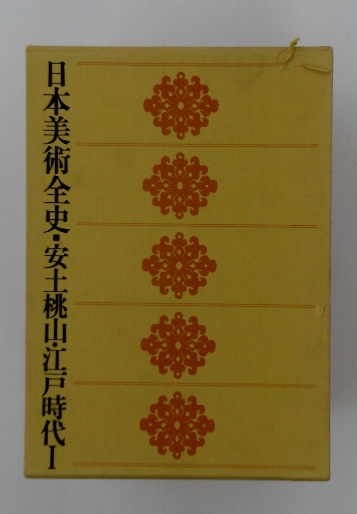 日本美術全史・安土桃山・江戸時代I